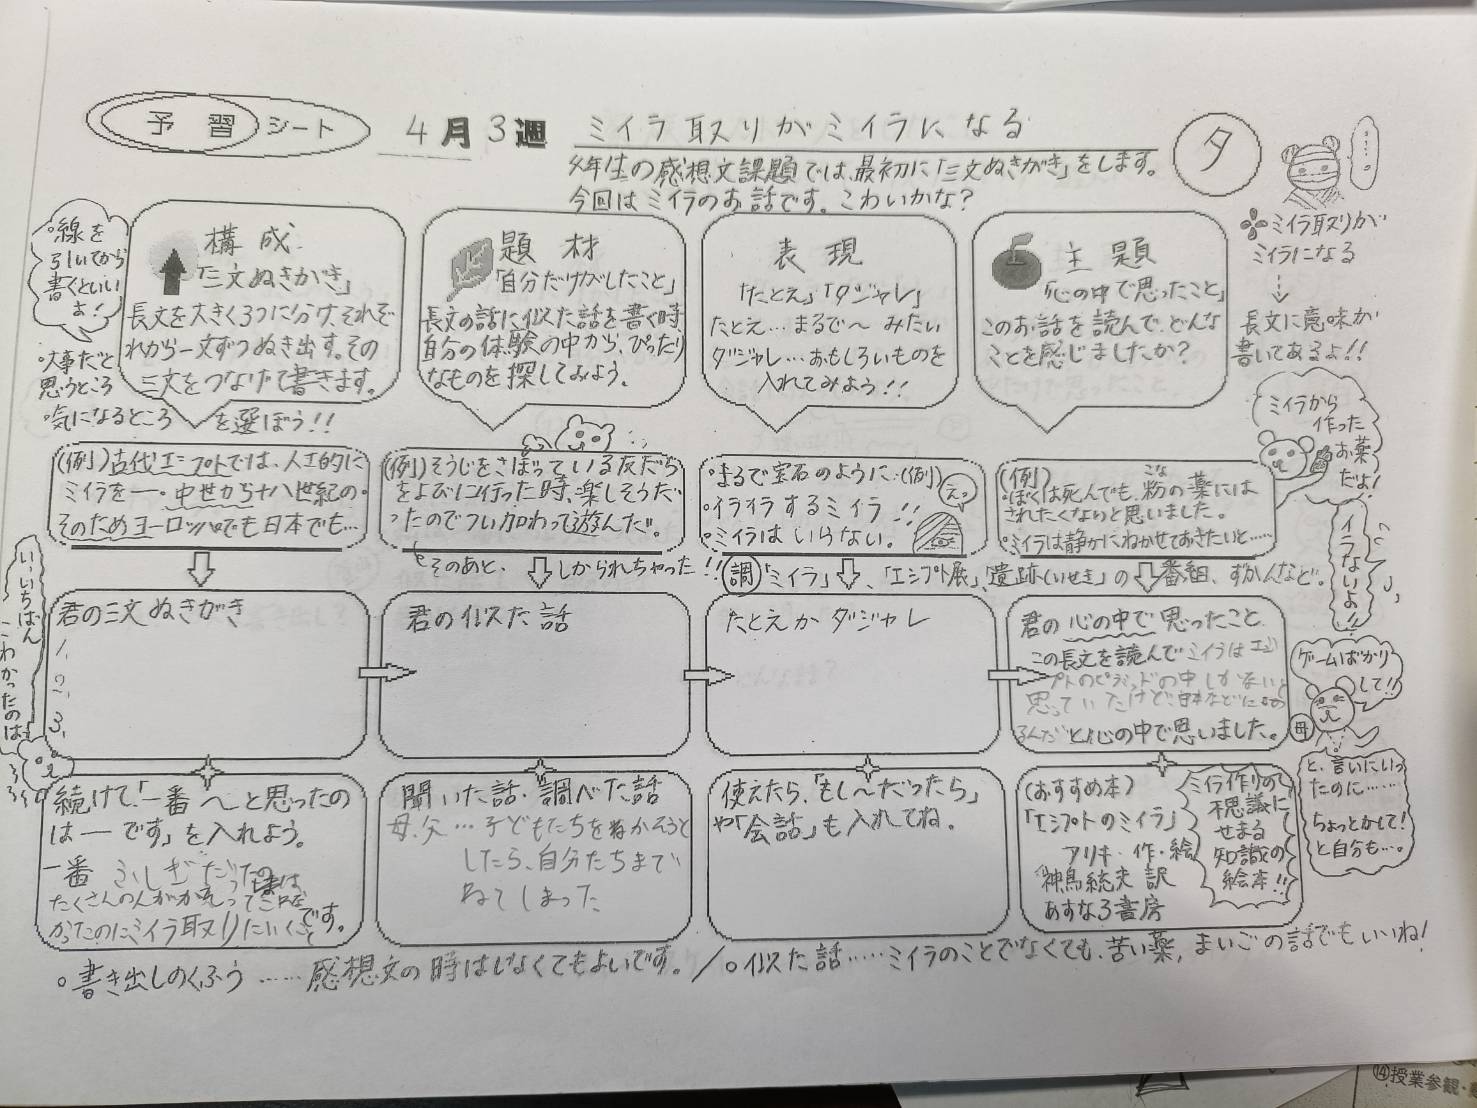 予習シート
4月3週
ミイラ取りがミイラになる
夕
4年生の感想文課題では、最初に「三文ぬきがき」をします。
今回はミイラのお話です。こわいかな?
……。
ミイラ取りが
ミイラになる
長文に意味が
書いてあるよ!!
線を
引いてから
書くといい
よ!
構成
「三文ぬきがき」
長文を大きく3つに分け、それぞ
れから一文ずつぬき出す。その
三文をつなげて書きます。
・大事だと
思うところ
・気になるところ を選ぼう!!
題材
「自分だけがしたこと」
長文の話に似た話を書く時、
自分の体験の中から、ぴったり
なものを探してみよう。
表現
「たとえ」「ダジャレ」
たとえ…まるで〜みたい
ダジャレ…おもしろいものを
入れてみよう!!
主題
「心の中で思ったこと」
このお話を読んで、どんな
ことを感じましたか?
(例)古代エジプトでは、人工的に
ミイラを―・中世から十八世紀の・
そのためヨーロッパでも日本でも…
(例)そうじをさぼっている友だち
をよびに行った時、楽しそうだ
ったのでつい加わって遊んだ!!
そのあと、しかられちゃった!!
・まるで宝石のように…(例)
・イライラするミイラ!!
・ミイラはいらない。
えっ
(例)
・ぼくは死んでも、粉の薬には
こな
されたくないと思いました。
・ミイラは静かにねかせておきたいと……
ミイラから
作った
お薬
だよ!
イラナイよ!!
調「ミイラ」、「エジプト展」、「遺跡(いせき)」の番組、ずかんなど。
い、いちばん
こわかったのは
君の三文ぬきがき
1、
2、
3、
君の似た話
たとえかダジャレ
君の心の中で思ったこと
この長文を読んでミイラはエジ
プトのピラミッドの中しかないと
思っていたけど、日本などにもあ
るんだと心の中で思いました。
ゲームばかり
して!!
母
と、言いにいっ
たのに……
ちょっとかして!
と自分も…。
続けて、「一番〜と思ったの
は―です」を入れよう。
一番 ふしぎだったのは
たくさんの人が
かったのに、ミイラ取りにいくことです。
聞いた話・調べた話
母、父…子どもたちをねかそうと
したら、自分たちまで
ねてしまった
使えたら、「もし〜だったら」
や「会話」も入れてね。
(おすすめ本)
「エジプトのミイラ」
アリキ・作・絵
神鳥統夫 訳
あすなろ書房
ミイラ作りの
不思議に
せまる
知識の
絵本!!
・書き出しのくふう……感想文の時はしなくてもよいです。/・似た話……ミイラのことでなくても、苦い薬、まいごの話でもいいね!
⑭授業参観・